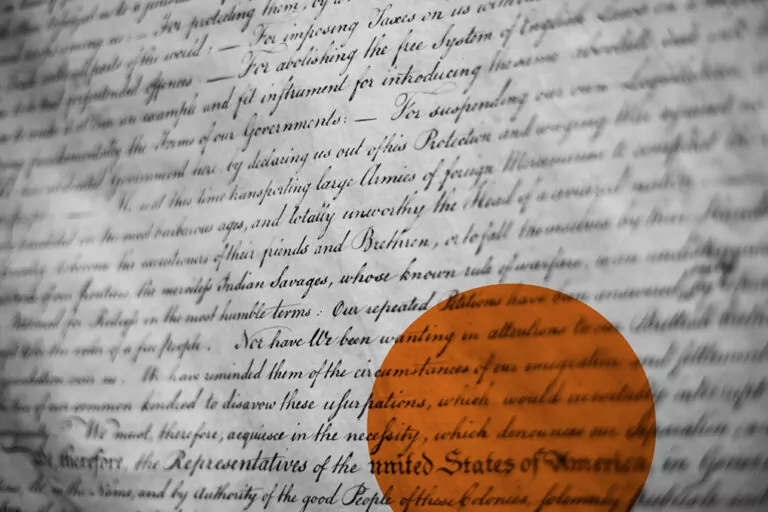 For protecting them, by
For imposing Taxes on us with
parts of the world: — For abolishing the free System of English
pretended offences: — example and fit instrument for introducing the same absolute
fundamentally the Forms of our Governments: — For suspending our own
Government here, by declaring us out of his Protection and waging War against
this time transporting large Armies of foreign Mercenaries to compleat
in the most barbarous ages, and totally unworthy the Head of a civilized nation
to become the executioners of their friends and Brethren, or to fall themselves by their Hands
of our frontiers, the merciless Indian Savages, whose known rule of warfare, is an undistinguished
Petitioned for Redress in the most humble terms: Our repeated Petitions have been answered
the ruler of a free people. Nor have We been wanting in attentions to our Brittish
over us. We have reminded them of the circumstances of our emigration and settlement
of our common kindred to disavow these usurpations, which would inevitably interrupt
We must, therefore, acquiesce in the necessity, which denounces our Separation, and
therefore, the Representatives of the united States of America, in General
the Name, and by Authority of the good People of these Colonies, solemnly publish and